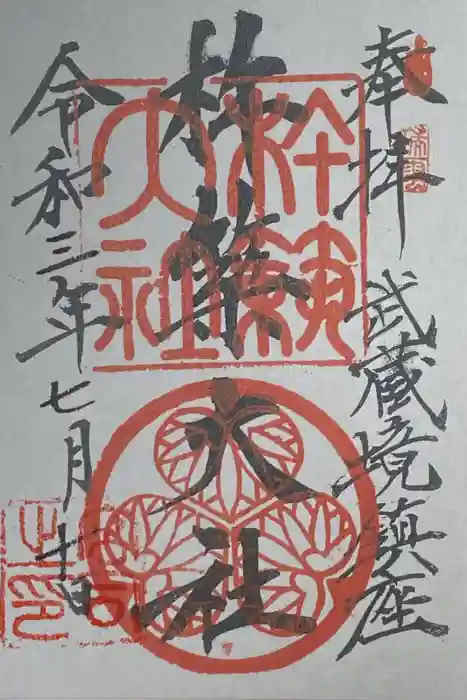 奉拝
武蔵境鎮座
杵築大社
杵築
大社
令和三年七月十日
宮司
之印